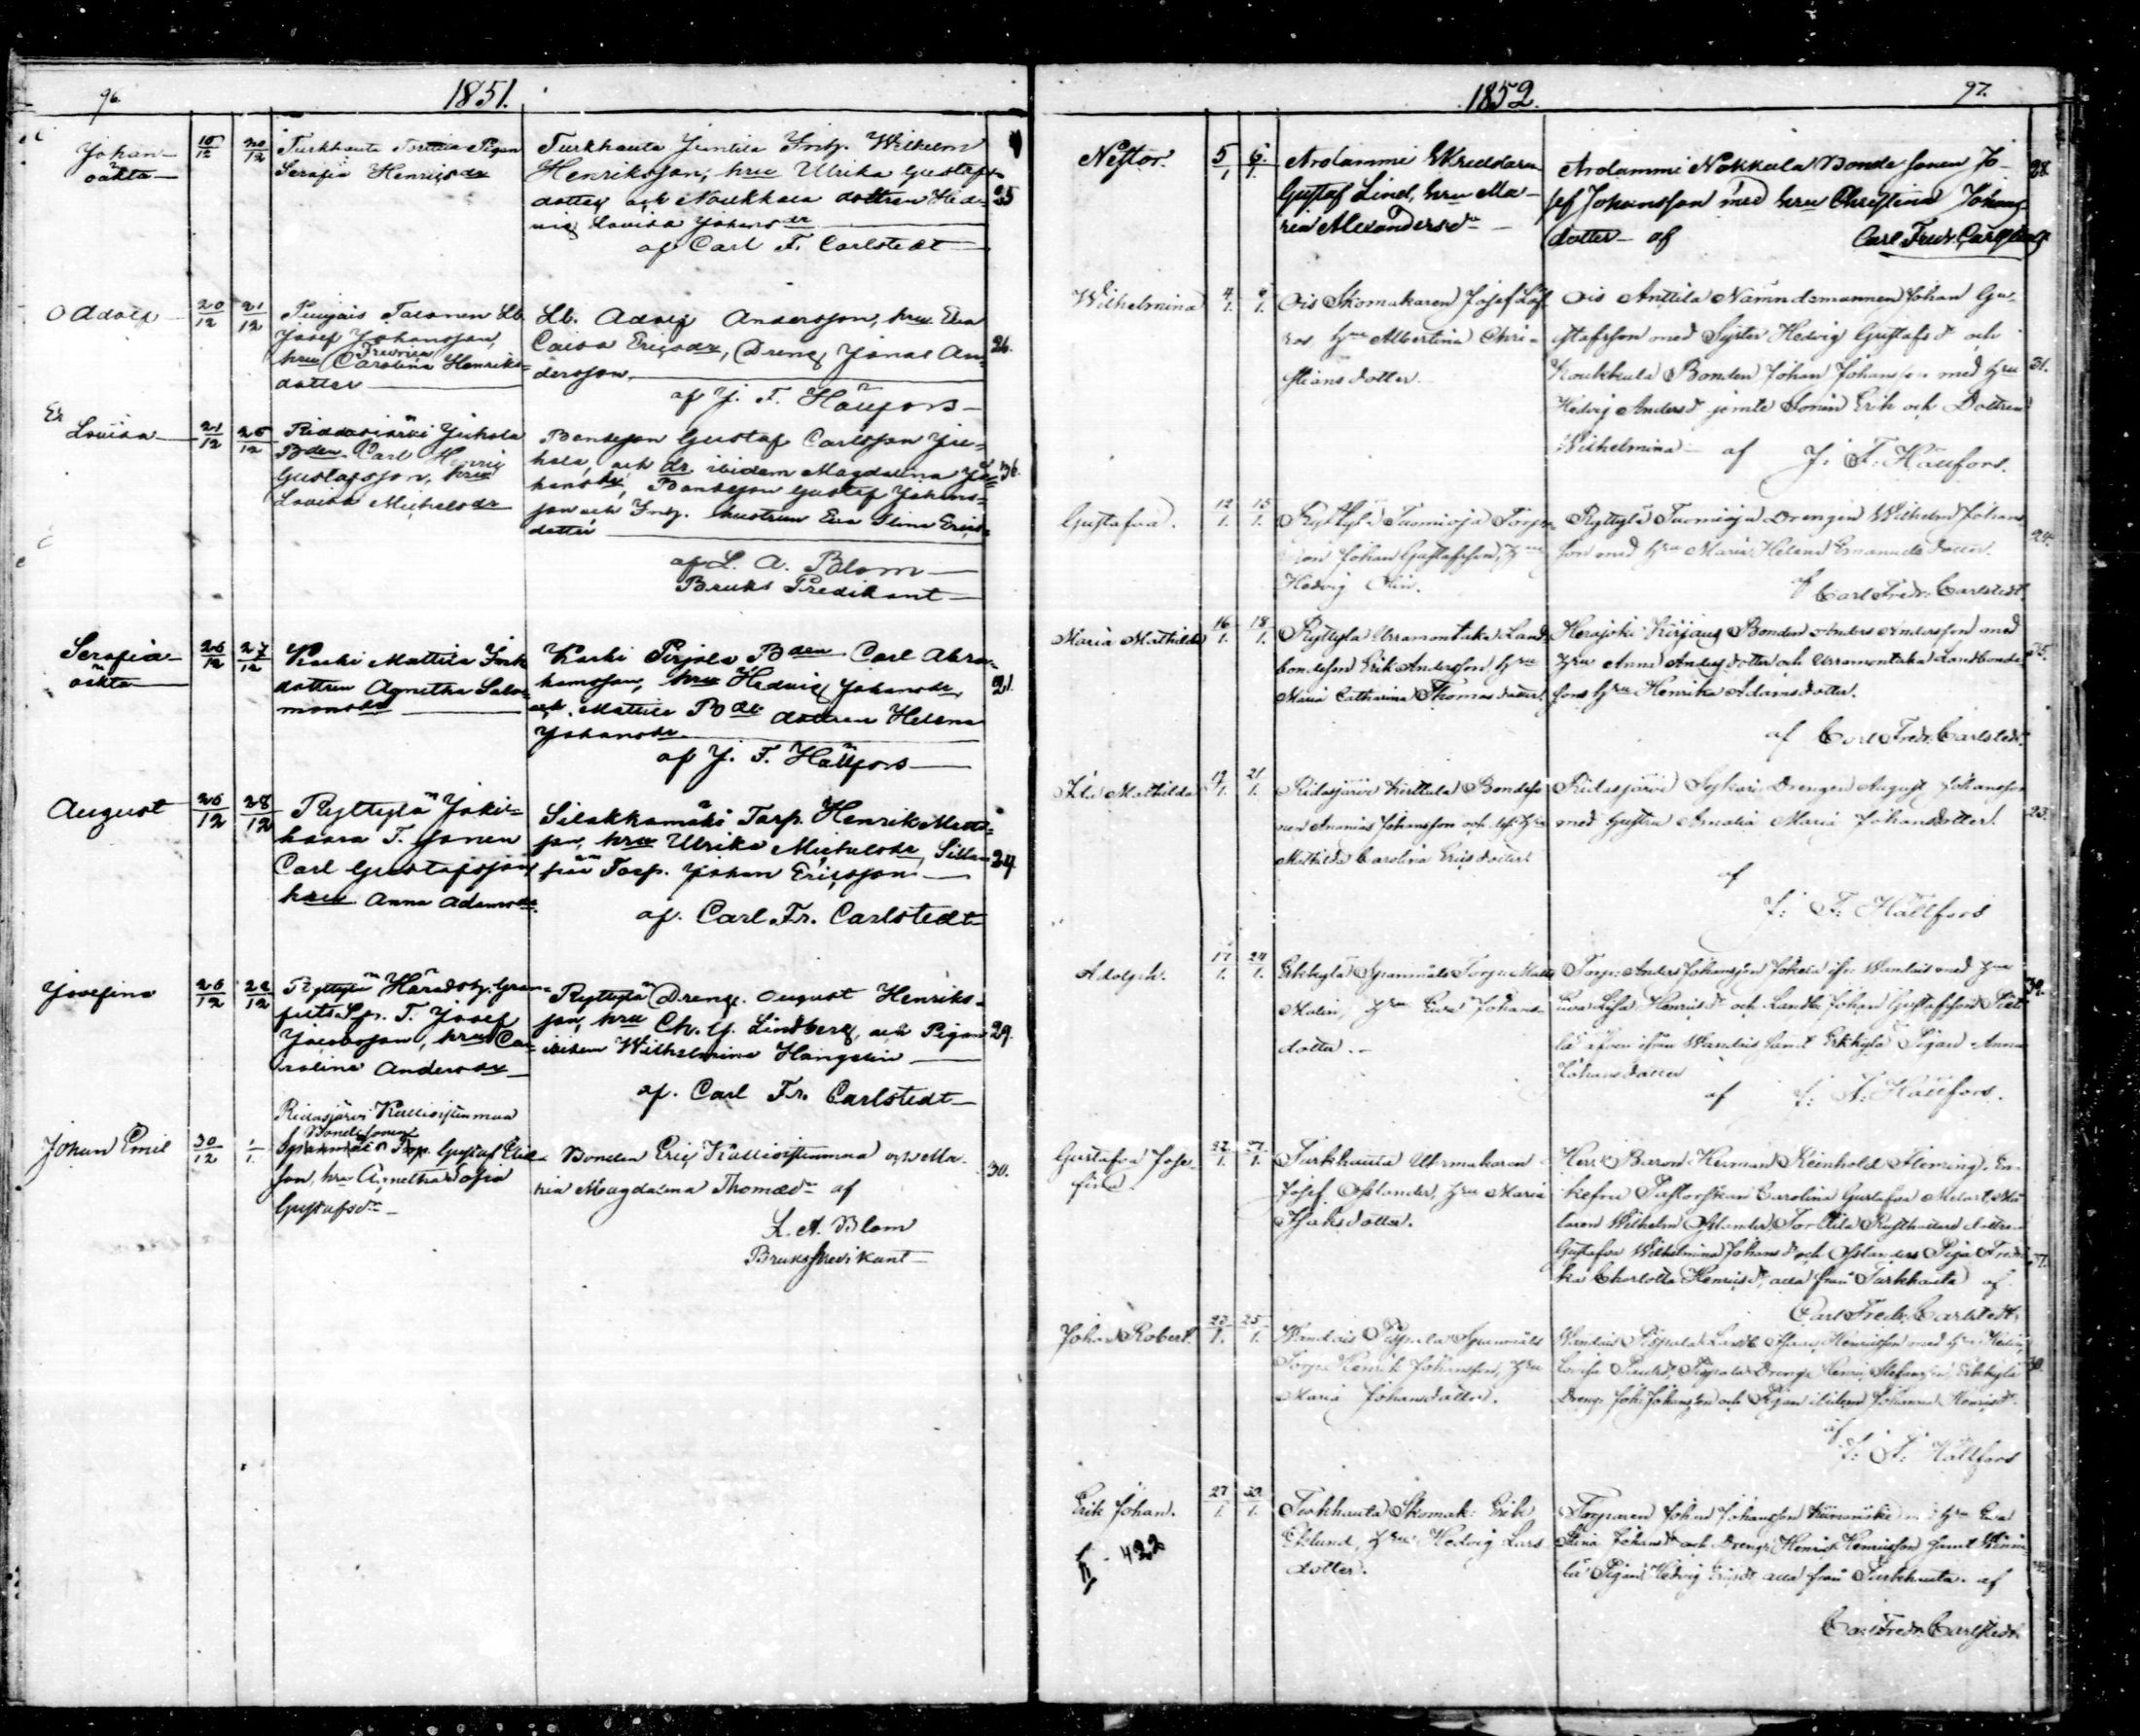 96.
1851.
Johan
oäkta
15/12 20/12
Turkhauta Pigan
Serafia Henricsdr
Turkhauta Juntila Inh. Wilhelm
Henriksson, hru Ulrika Gustafs-
dotter och Noukkala dottren Hed-
vig Lovisa Johansdr
af Carl F. Carlstedt
25
Adolf
20/12 21/12
Lb.
Josef Johansson,
hru Fredrica Carolina Henriks-
dotter
Lb. Adolf Andersson, hru Eva
Caisa Ericsdr, Dreng Jonas An-
dersson
af J. F. Hällfors
26.
Lovisa
21/12 25/12
Riddasjärvi Juhola
Bden Carl Henric
Gustafsson, hru
Lovisa Michelsdr
Bondeson Gustaf Carlsson Ju-
hola, och dr ibidem Magdalena Jo-
hansdr, Bondeson Gustaf Johans-
son och Inh. hustrun Eva Stina Erics-
dotter
af L. A. Blom
Bruks Predikant
36.
Serafia
oäkta
26/12 27/12
Karhi Mattila Inh
dottren Agnetha Salo-
monsdr
Karhi Pirjola Bden Carl Abra-
hamsson, hru Hedvig Johansdr,
och Mattila Bde dottren Helena
Johansdr
af J. F. Hällfors
21.
August
26/12 28/12
Ryttylä Joki-
haara T. sonen
Carl Gustafsson
hru Anna Adamsdr
Silakkamäki Torp. Henrik Matts-
son, hru Ulrika Michelsdr,
Torp. Johan Ericsson
af. Carl Fr. Carlstedt
24
Josefina
26/12 28/12
Ryttylä
T. Josef
Jacobsson, hru Ca-
rolina Andersdr
Ryttylä Dreng. August Henriks-
son, hru Ch. G. Lindberg, och Pigan
ibidem Wilhelmina Hangelin
af. Carl Fr. Carlstedt
29.
Johan Emil
30/12 1/1
Ridasjärvi Kulliois
Bondesonen
Torp. Gustaf Eric
son, hru Agnetha Sofia
Gustafsdr
Bonden Eric och Ma-
ria Magdalena Thomasdr af
L. A. Blom
Brukspredikant
30.
1852.
97.
Nestor.
5/1 6/1
Arolammi Skreddaren
Gustaf Lind, hru Ma-
ria Alexandersdr
Arolammi Nokkala Bonde sonen Jo-
sef Johansson med hru Christina Johans-
dotter af Carl Fredr. Carlstedt
28.
Wilhelmina
4/1 6/1
Ois Skomakaren Josef Löf
ros hru Albertina Chri-
stiansdotter.
Ois Anttila Nämndemannen Johan Gu-
stafsson med Syster Hedvig Gustafsd och
Koukkula Bonden Johan Johansson med hru
Hedvig Andersd jemte Sonen Erik och Dottren
Wilhelmina af J. F. Hällfors.
31.
Gustafva.
12/1 15/1
Ryttylä Tuomioja Torp
Johan Gustafsson, hru
Hedvig
Ryttylä Tuomioja Drengen Wilhelm Johans
son med hru Maria Helena Emanuelsdotter.
af Carl Fredr. Carlstedt
24.
Maria Mathilda
16/1 18/1
Ryttylä Urramontaka Land-
bondeson Erik Andersson, hru
Maria Catharina Thomasdotter.
Herajoki Bonden Anders Andersson med
hru Anna Andersdotter och Urramontaka Landbonde
sons hru Henrika Adamsdotter.
af Carl Fredr. Carlstedt
25.
Ida Mathilda
17/1 21/1
Ridasjärvi Bondeso
nen Ananias Johansson och hru
Mathilda Carolina Ericsdotter
Ridasjärvi Drengen August Johansson
med hustru Amalia Maria Johansdotter.
af
J. F. Hällfors
23.
Adolph.
17/1 24/1
Erkkylä Spannmåls Torp. Matts
Malin, hru Eva Johans-
dotter.
Torp. Anders Johansson ifrån Wantais med hru
Eva Lisa Henricsd och Landb. Johan Gustafsson
äfven ifrån Wantais samt Erkkylä Pigan Anna
Johansdotter
af J. F. Hällfors.
39.
Gustafva Jose-
fina.
22/1 27/1
Turkhauta Urmakaren
Josef Osslander, hru Maria
Isaksdotter.
Herr Baron Herman Reinhold Fleming, En-
kefru Pastorskan Carolina Gustafva
Wilhelm Osslander, Rusthållare dottren
Gustafva Wilhelmina Johansd och Osslanders Piga Fred-
rika Charlotta Henricsd, alla från Turkhauta af
Carl Fredr. Carlstedt
37.
Johan Robert.
23/1 25/1
Wantais Pispala Spannmåls
Torp. Henrik Johansson, hru
Maria Johansdotter.
Wantais Pispala Landb. Isaac Henricsson med hru Hedvig
Lovisa Paulsd, Pispala Dreng Henric Stefansson, Erkkylä
Dreng Joh. Johansson och Pigan ibidem Johanna Henricsd.
af
J. F. Hällfors
Erik Johan.
II - 422
27/1 30/1
Turkhauta Skomak: Erik
Eklund, hru Hedvig Lars
dotter.
Torparen Johan Johansson hru Eva
Stina Johansd och Dreng Henric Henricsson samt
Pigan Hedvig Ericsdr, alla från Turkhauta. af
Carl Fredr. Carlstedt